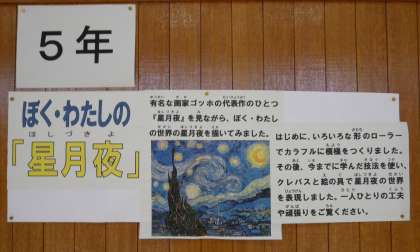 5年
ぼく・わたしの
ほしづきよ
「星月夜」
有名な画家ゴッホの代表作のひとつ
『星月夜』を見ながら、ぼく・わたし
の世界の星月夜を描いてみました。
はじめに、いろいろな形のローラー
でカラフルに模様をつくりました。
その後、今までに学んだ技法を使い、
クレパスと絵の具で星月夜の世界
を表現しました。一人ひとりの工夫
や頑張りをご覧ください。